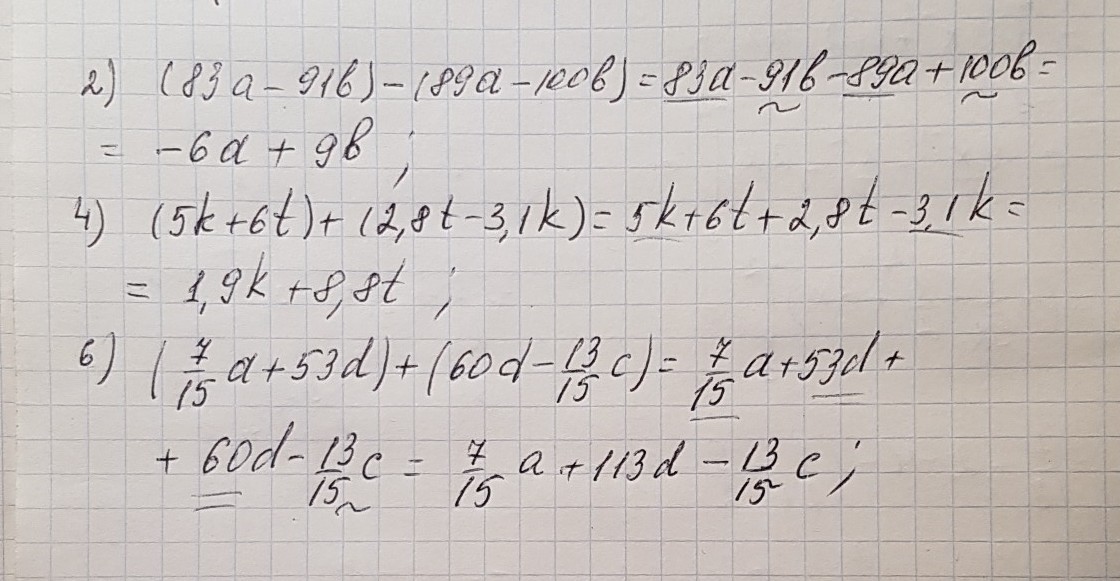 2) (83a - 91b) - (89a - 100b) = 83a - 91b - 89a + 100b =
= -6a + 9b ;
4) (5k + 6t) + (2,8t - 3,1k) = 5k + 6t + 2,8t - 3,1k =
= 1,9k + 8,8t ;
6) (7/15 a + 53d) + (60d - 13/15 c) = 7/15 a + 53d +
+ 60d - 13/15 c = 7/15 a + 113d - 13/15 c ;